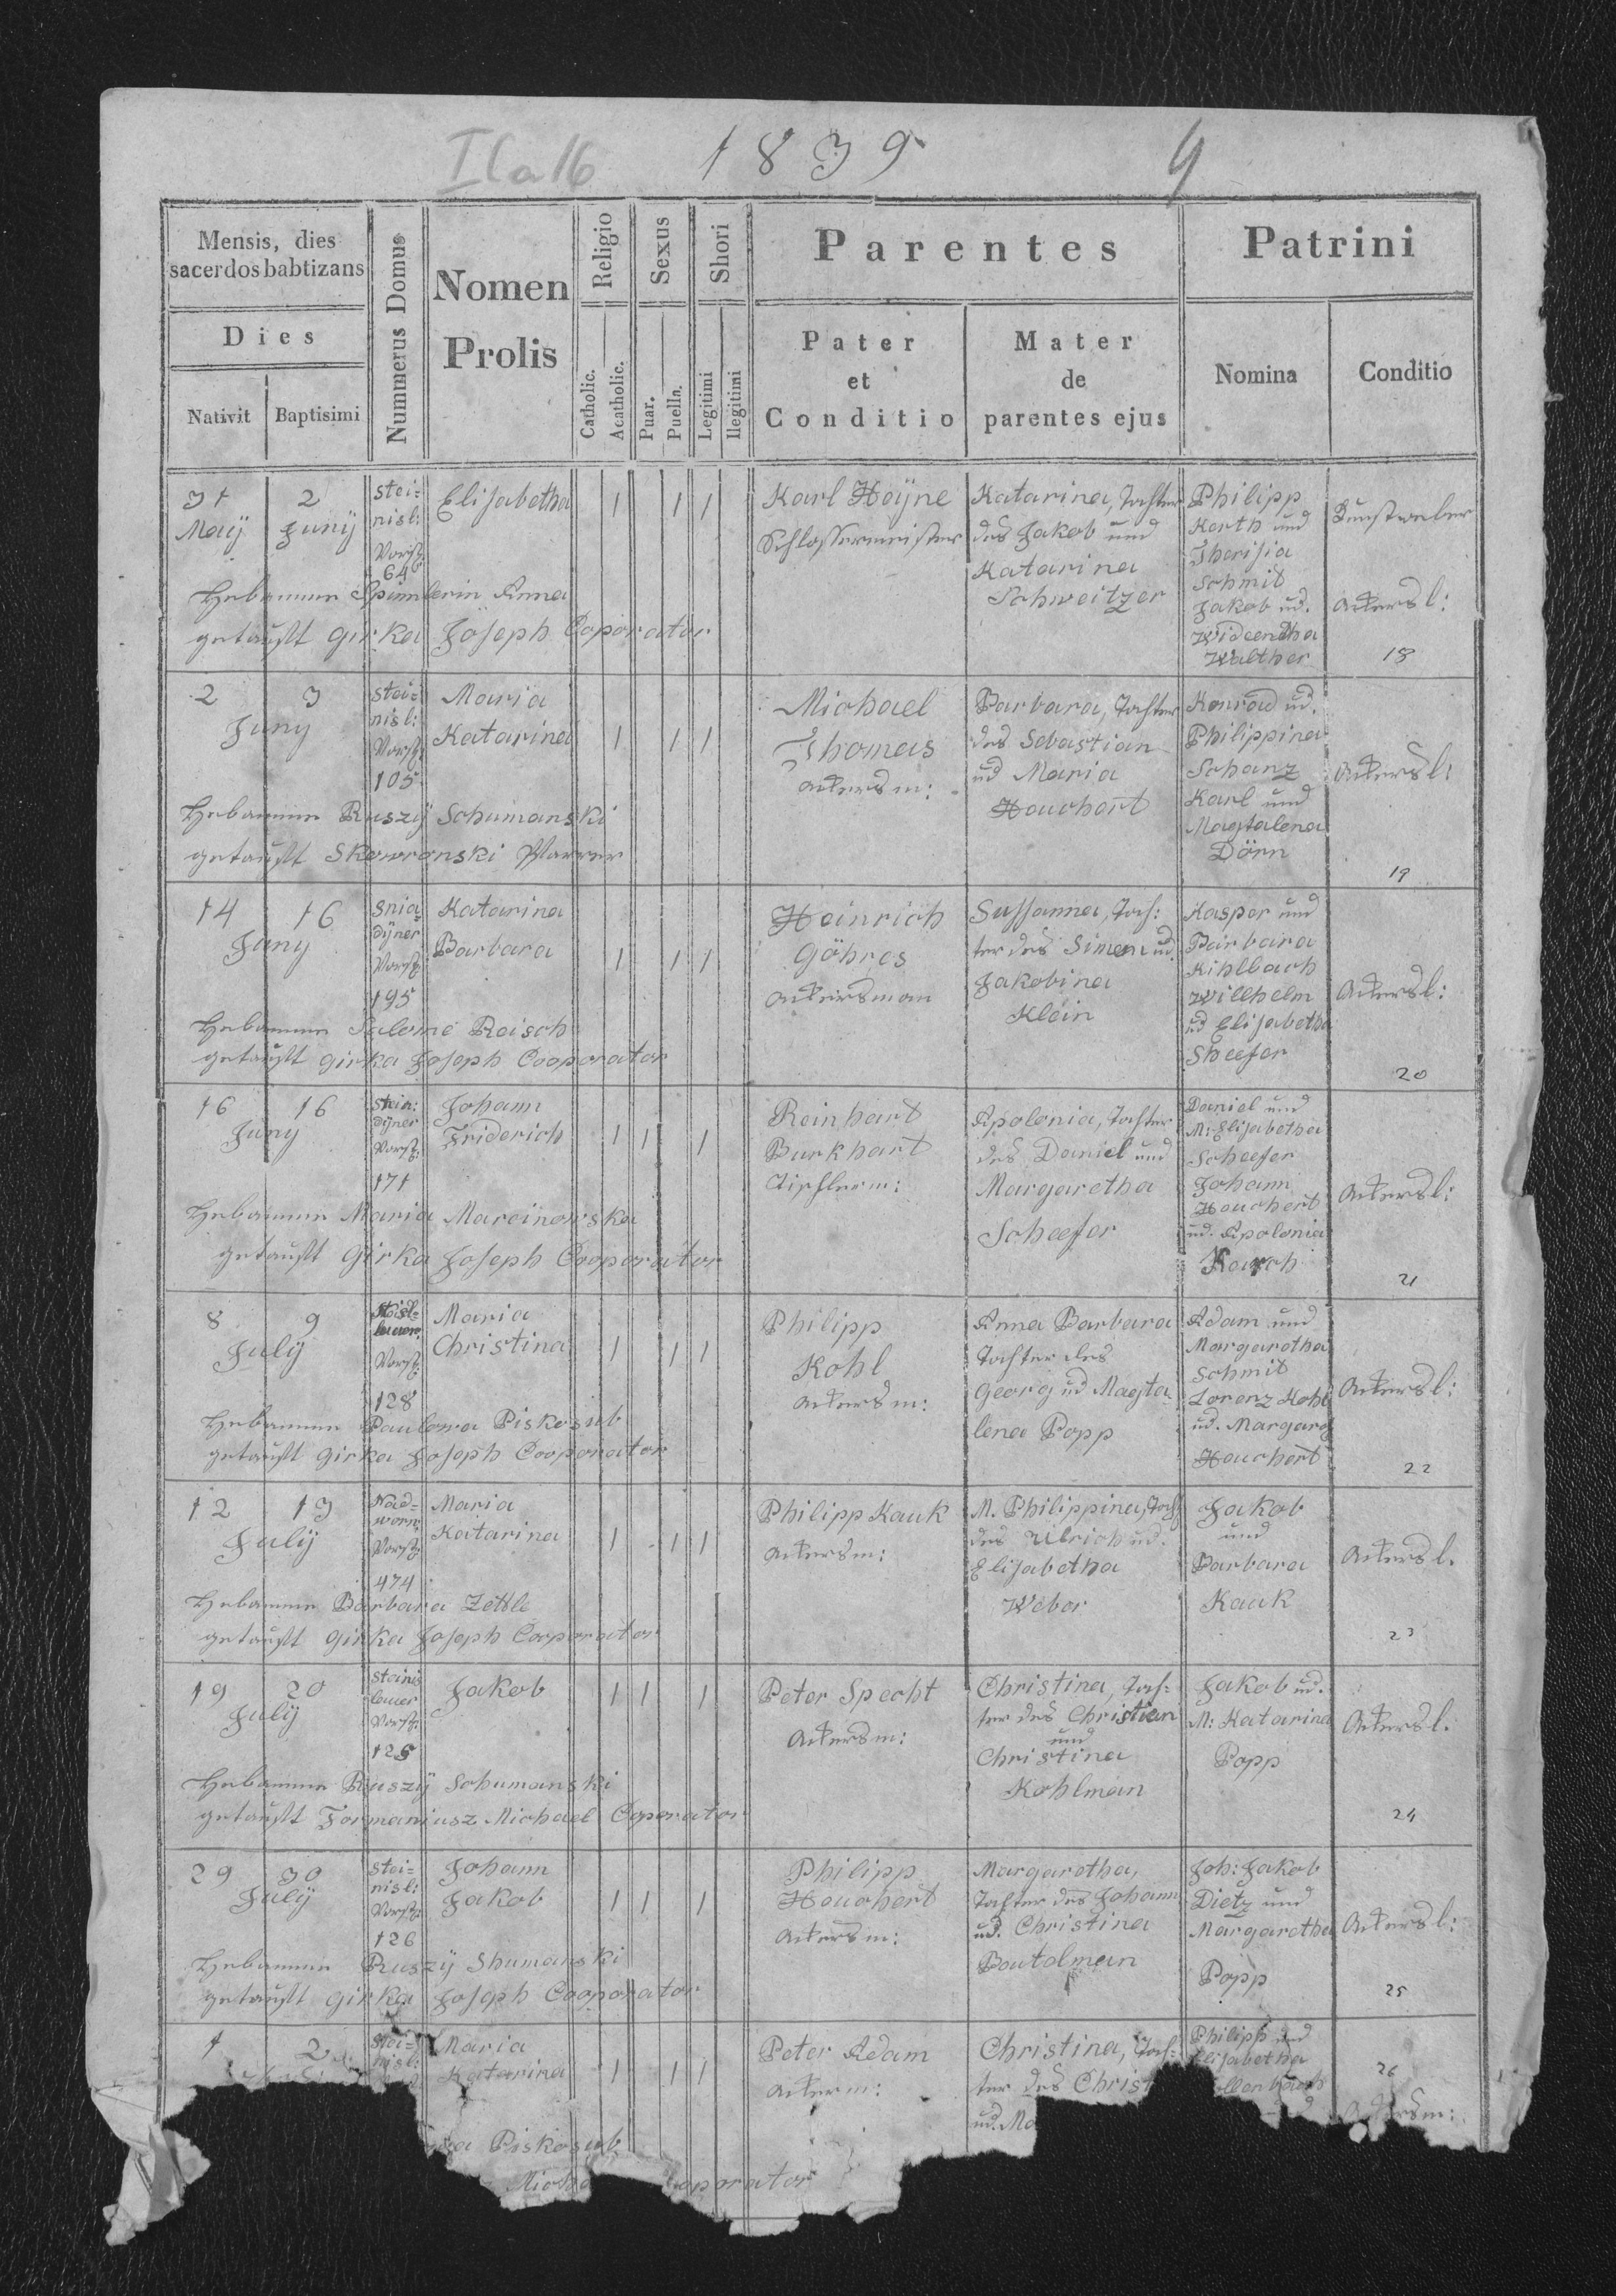 I C a 16
1839
4
Mensis, dies
sacerdos babtizans
Dies
Nativit
Baptisimi
Nummerus Domus
Nomen
Prolis
Religio
Catholic.
Acatholic.
Sexus
Puar.
Puella.
Shori
Legitimi
Ilegitimi
Parentes
Pater
et
Conditio
Mater
de
parentes ejus
Patrini
Nomina
Conditio
31 2
Maÿ Junÿ
stei=
nisl:
Vorst:
64
Elisabetha
1 1 1
Karl Heÿne
Schlossermeister
Katarina, Tochter
des Jakob und
Katarina
Schweitzer
Philipp
Kerth und
Therisia
Schmit
Jakob ud.
Walther
Kunstweber
Akersl:
18
Hebamme Spimlerin Anna
getauft Girka Joseph Coporator
2 3
Juny
stei=
nisl:
Vorst:
105
Maria
Katarina
1 1 1
Michael
Thomas
Akersm:
Barbara, Tochter
des Sebastian
ud Maria
Houchert
Konrad ud.
Philippina
Schanz
Karl und
Magtalena
Dörn
Akersl:
19
Hebamme Ruszÿ Schumanski
getauft Skowronski Pfarrer
14 16
Juny
snia
dÿner
Vorst:
195
Katarina
Barbara
1 1 1
Heinrich
Göhres
Akersman
Sussanna, Toch:
ter des Simon ud
Jakobina
Klein
Kasper und
Barbara
Kihlbach
Willhelm
ud Elisabetha
Sheefer
Akersl:
20
Hebamme Salome Reisch
getauft Girka Joseph Cooporator
16 16
Juny
dÿner
Vorst:
171
Johann
Friderich
1 1 1
Reinhart
Burkhart
Tipflerm:
Apolonia, Tochter
des Daniel und
Margaretha
Scheefer
Daniel und
M: Elisabetha
Scheefer
Johann
Houchert
ud. Apolonia
Akersl:
21
Hebamme Maria Marcinowska
getauft Girka Joseph Cooporator
8 9
Julÿ
Vorst:
128
Maria
Christina
1 1 1
Philipp
Kohl
Akersm:
Anna Barbara
Tochter des
Georg ud Magta-
lena Popp
Adam und
Margaretha
Schmit
Lorenz Kohl
ud. Margarg
Houchert
Akersl:
22
Hebamme Paulowa Piskosub
getauft Girka Joseph Cooporator
12 13
Julÿ
Nad=
worn:
Vorst:
474
Maria
Katarina
1 1 1
Philipp Kauk
Akersm:
M. Philippina, Toch
des Ulrich ud.
Elisabetha
Weber
Jakob
und
Barbara
Kauk
Akersl.
23
Hebamme Barbara Zettle
getauft Girka Joseph Cooporator
19 20
Julÿ
steinis
lauer
Vorst:
125
Jakob
1 1 1
Peter Specht
Akersm:
Christina, Toch=
ter des Christian
und
Christina
Kohlman
Jakob ud.
M: Katarina
Popp
Akersl.
24
Hebamme Ruszÿ Schumanski
getauft Formaniusz Michael Coporator
29 30
Julÿ
stei=
nisl:
Vorst:
126
Johann
Jakob
1 1 1
Philipp
Houchert
Akersm:
Margaretha,
Tochter des Johann
ud. Christina
Boutolman
Joh: Jakob
Dietz und
Margaretha
Popp
Akersl:
25
Hebamme Ruszÿ Shumanski
getauft Girka Joseph Cooporator
1 2
stei=
nisl:
Maria
Katarina
1 1 1
Peter Adam
Akerm:
Christina, Toch=
ter des Christ
ud. Ma
Philipp und
Elisabetha
26
Akersm:
Piskosub
Micha oporator